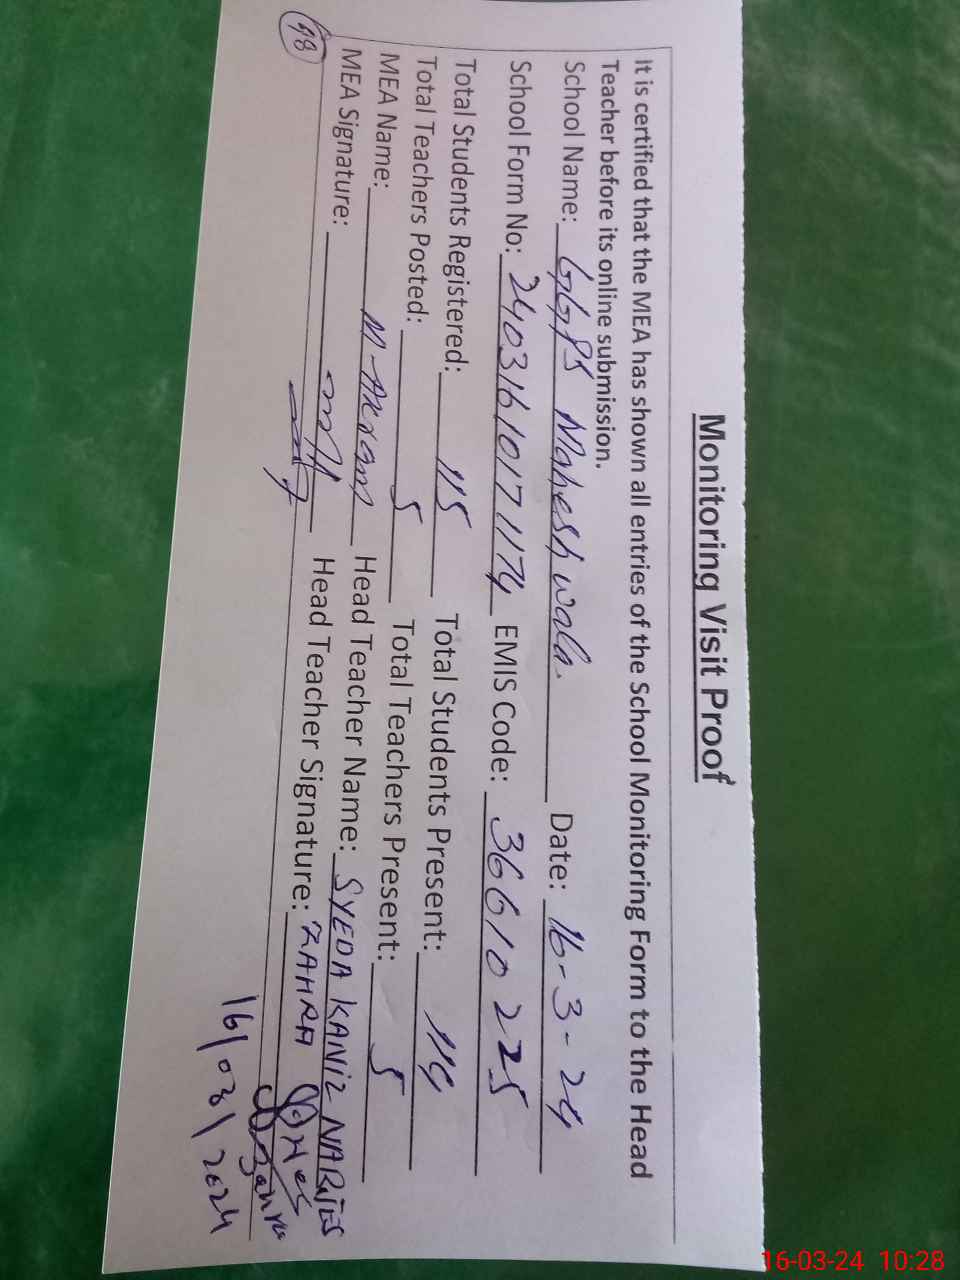 Monitoring Visit Proof
It is certified that the MEA has shown all entries of the School Monitoring Form to the Head
Teacher before its online submission.
School Name: GGPS Mahesh wala. Date: 16-3-24
School Form No: 24031610171174 EMIS Code: 36610225
Total Students Registered: 115 Total Students Present: 114
Total Teachers Posted: 5 Total Teachers Present: 5
MEA Name: M-Akram Head Teacher Name: SYEDA KANIZ NARJES
MEA Signature: Head Teacher Signature: ZAHRA
98
16/03/2024
16-03-24 10:28